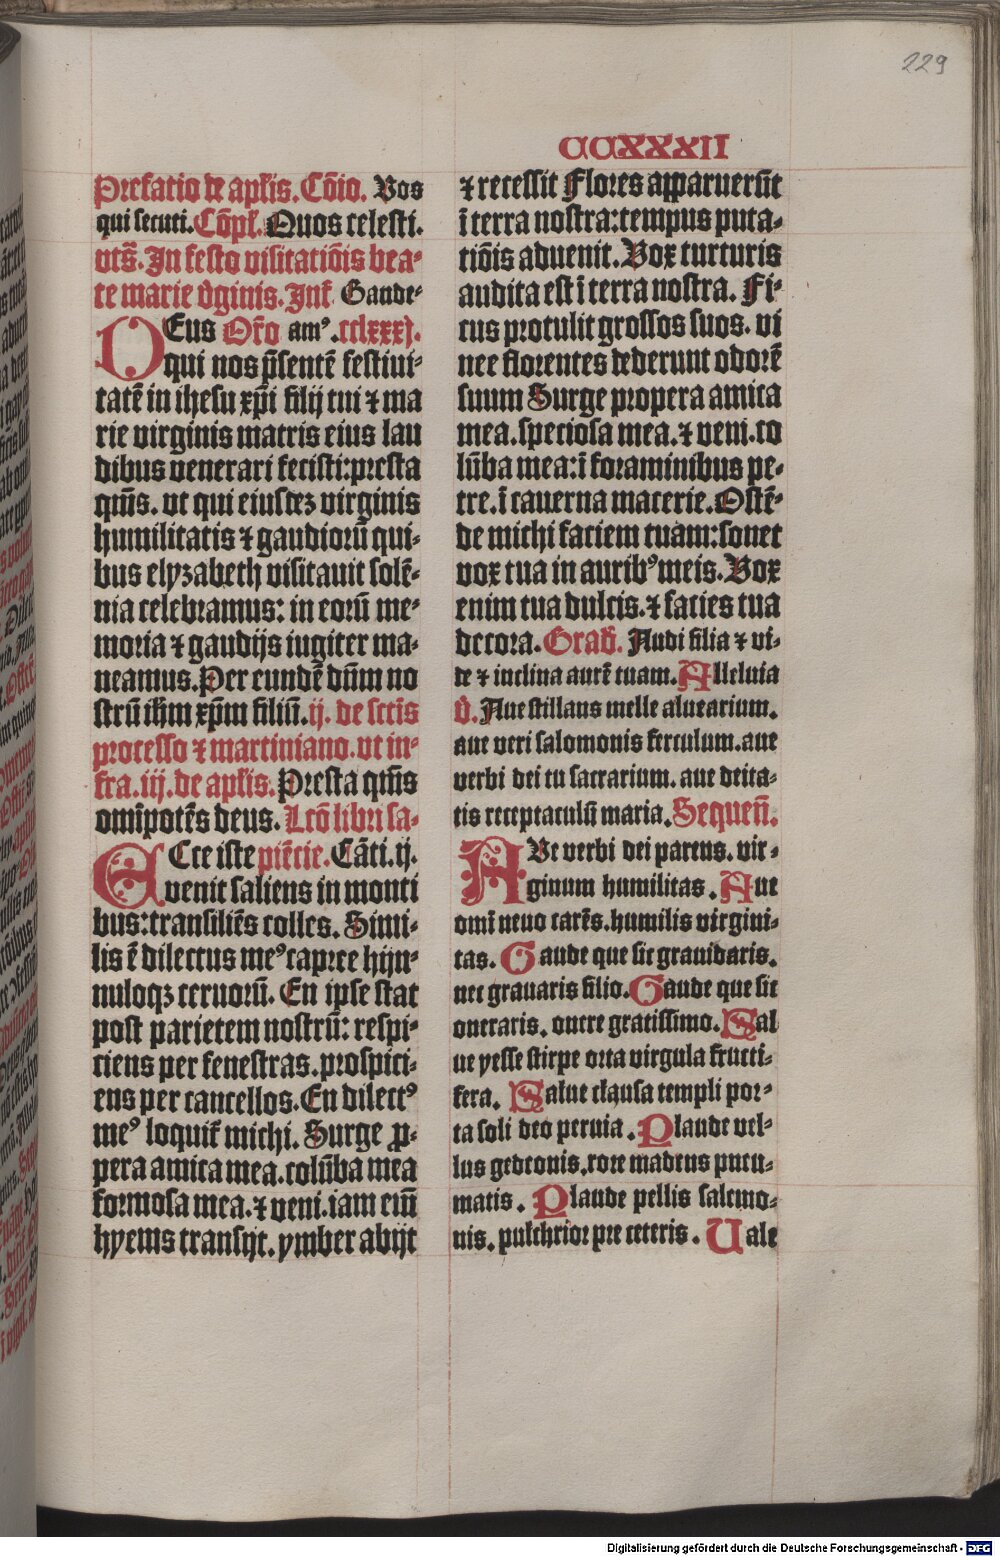 229
CCXXXII
Prefatio de apl'is. Cōio. Vos
qui secuti. Cōpl'. Quos celesti.
vts̄. In festo visitatiōis bea-
te marie v̄ginis. Int̄ Gaude-
DEus Or̄o amꝰ .cclxxxj.
qui nos p̄sentē festiui-
tatē in ihesu xp̄i filij tui ⁊ ma
rie virginis matris eius lau
dibus venerari fecisti: presta
qm̄s. vt qui eiusdez virginis
humilitatis ⁊ gaudiorū qui-
bus elyzabeth visitauit solē-
nia celebramus: in eorū me-
moria ⁊ gaudijs iugiter ma-
neamus. Per eundē dn̄m no
strū ihm̄ xp̄m filiū. ij. de sctīs
processo ⁊ martiniano. vt in-
fra. iij. de apl'is. Presta qm̄s
omīpotēs deus. Lcō libri sa-
ECce iste piēcie. Cāti. ij.
venit saliens in monti
bus: transiliēs colles. Simi-
lis ē dilectus meꝰ capree hijn-
nuloqꝫ ceruorū. En ipse stat
post parietem nostrū: respi-
ciens per fenestras. prospici-
ens per cancellos. En dilectꝰ
meꝰ loquit̄ michi. Surge p̱-
pera amica mea. colūba mea
formosa mea. ⁊ veni. iam eni᷒
hyems transijt. ymber abijt
⁊ recessit Flores apparuerūt
ī terra nostra: tempus puta-
tiōis aduenit. Vox turturis
audita est ī terra nostra. Fi-
cus protulit grossos suos. vi
nee florentes dederunt odorē
suum Surge propera amica
mea. speciosa mea. ⁊ veni. co
lūba mea: ī foraminibus pe-
tre. ī cauerna macerie. Ostē-
de michi faciem tuam: sonet
vox tua in auribꝰ meis. Vox
enim tua dulcis. ⁊ facies tua
decora. Grad̄. Audi filia ⁊ vi-
de ⁊ inclina aurē tuam. Alleluia
v̄. Aue stillans melle aluearium.
aue veri salomonis ferculum. aue
verbi dei tu sacrarium. aue deita-
tis receptaculū maria. Sequen̄.
AVe verbi dei parens. vir-
ginum humilitas. Aue
omī neuo carēs. humilis virgini-
tas. Gaude que sic grauidaris.
nec grauaris filio. Gaude que sic
oneraris. onere gratissimo. Sal
ue yesse stirpe orta virgula fructi-
fera. Salue clausa templi por-
ta soli deo peruia. Plaude vel-
lus gedeonis. rore madens pneu-
matis. Plaude pellis salemo-
nis. pulchrior pre ceteris. Uale
Digitalisierung gefördert durch die Deutsche Forschungsgemeinschaft - DFG